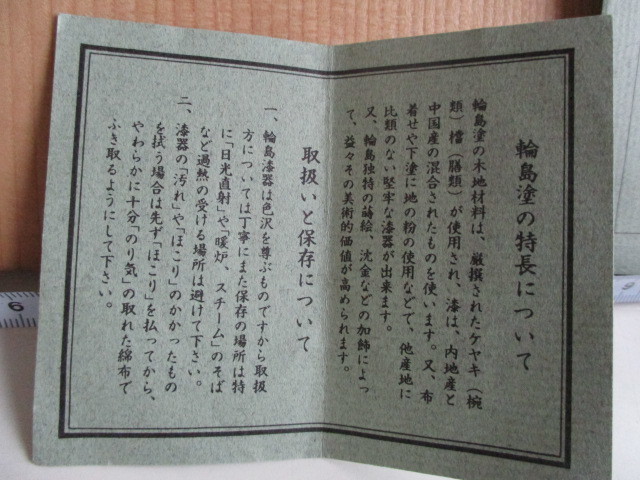 輪島塗の特長について
輪島塗の木地材料は、厳撰されたケヤキ（椀
類）檔（膳類）が使用され、漆は、内地産と
中国産の混合されたものを使います。又、布
着せや下塗に地の粉の使用などで、他産地に
比類のない堅牢な漆器が出来ます。
又、輪島独特の蒔絵、沈金などの加飾によっ
て、益々その美術的価値が高められます。
取扱いと保存について
一、輪島漆器は色沢を尊ぶものですから取扱
方については丁寧にまた保存の場所は特
に「日光直射」や「暖炉、スチーム」のそば
など過熱の受ける場所は避けて下さい。
二、漆器の「汚れ」や「ほこり」のかかったもの
を拭う場合は先ず「ほこり」を払ってから、
やわらかに十分「のり気」の取れた綿布で
ふき取るようにして下さい。
6
9